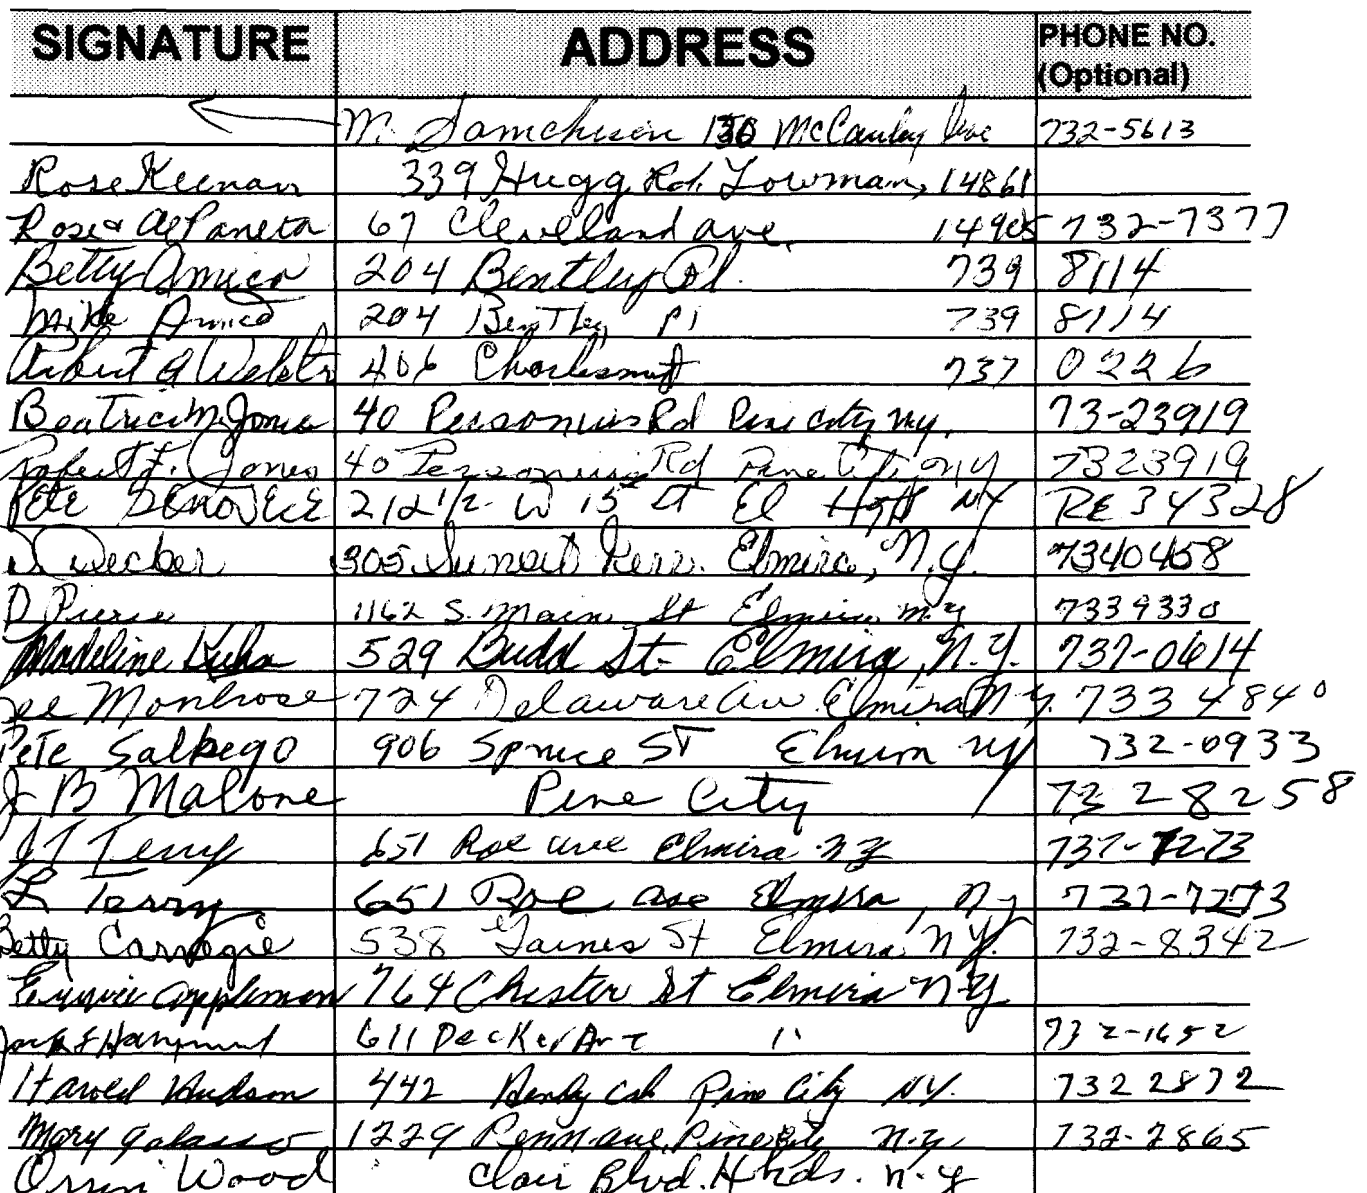 SIGNATURE ADDRESS PHONE NO. (Optional)
M. 130 McCauley Ave 732-5613
Rose Keenan 339 Hugg Rd. Lowman, 14861
Rose & Al Paneta 67 Cleveland ave. 14905 732-7377
Betty Amico 204 Bentley Pl. 739 8114
Mike Amico 204 Bentley Pl 739 8114
A 406 Charlesmont 737 0226
Beatrice M. Jones 40 Personius Rd Pine City, N.Y. 73-23919
Robert F. Jones 40 Personius Rd Pine City NY 7323919
PETE GENOVESE 212 1/2 W 15 St El NY RE 34328
D. Decker 305 Sunset Terr. Elmira, N.Y. 7340458
D Pierce 1162 S. Main St Elmira N.Y 7339330
Madeline 529 Budd St. Elmira, N.Y. 737-0614
Monrose 724 Delaware Av. Elmira N.Y. 733 4840
Pete Salpego 906 Spruce ST Elmira NY 732-0933
J B Malone Pine City 732 8258
J T Terry 651 Roe ave Elmira NY 737-7273
L Terry 651 Roe ave Elmira, Ny 737-7273
Betty Carnegie 538 Gaines St Elmira, N.Y. 732-8342
Appleman 764 Chester St Elmira N.Y
611 Decker Ave " 732-1652
Harold Hudson 442 Pine City NY. 732 2872
Mary Galasso 1229 Penn. ave. Pine City N.Y. 732-2865
Orrin Wood Clair Blvd. Hhds. N.Y